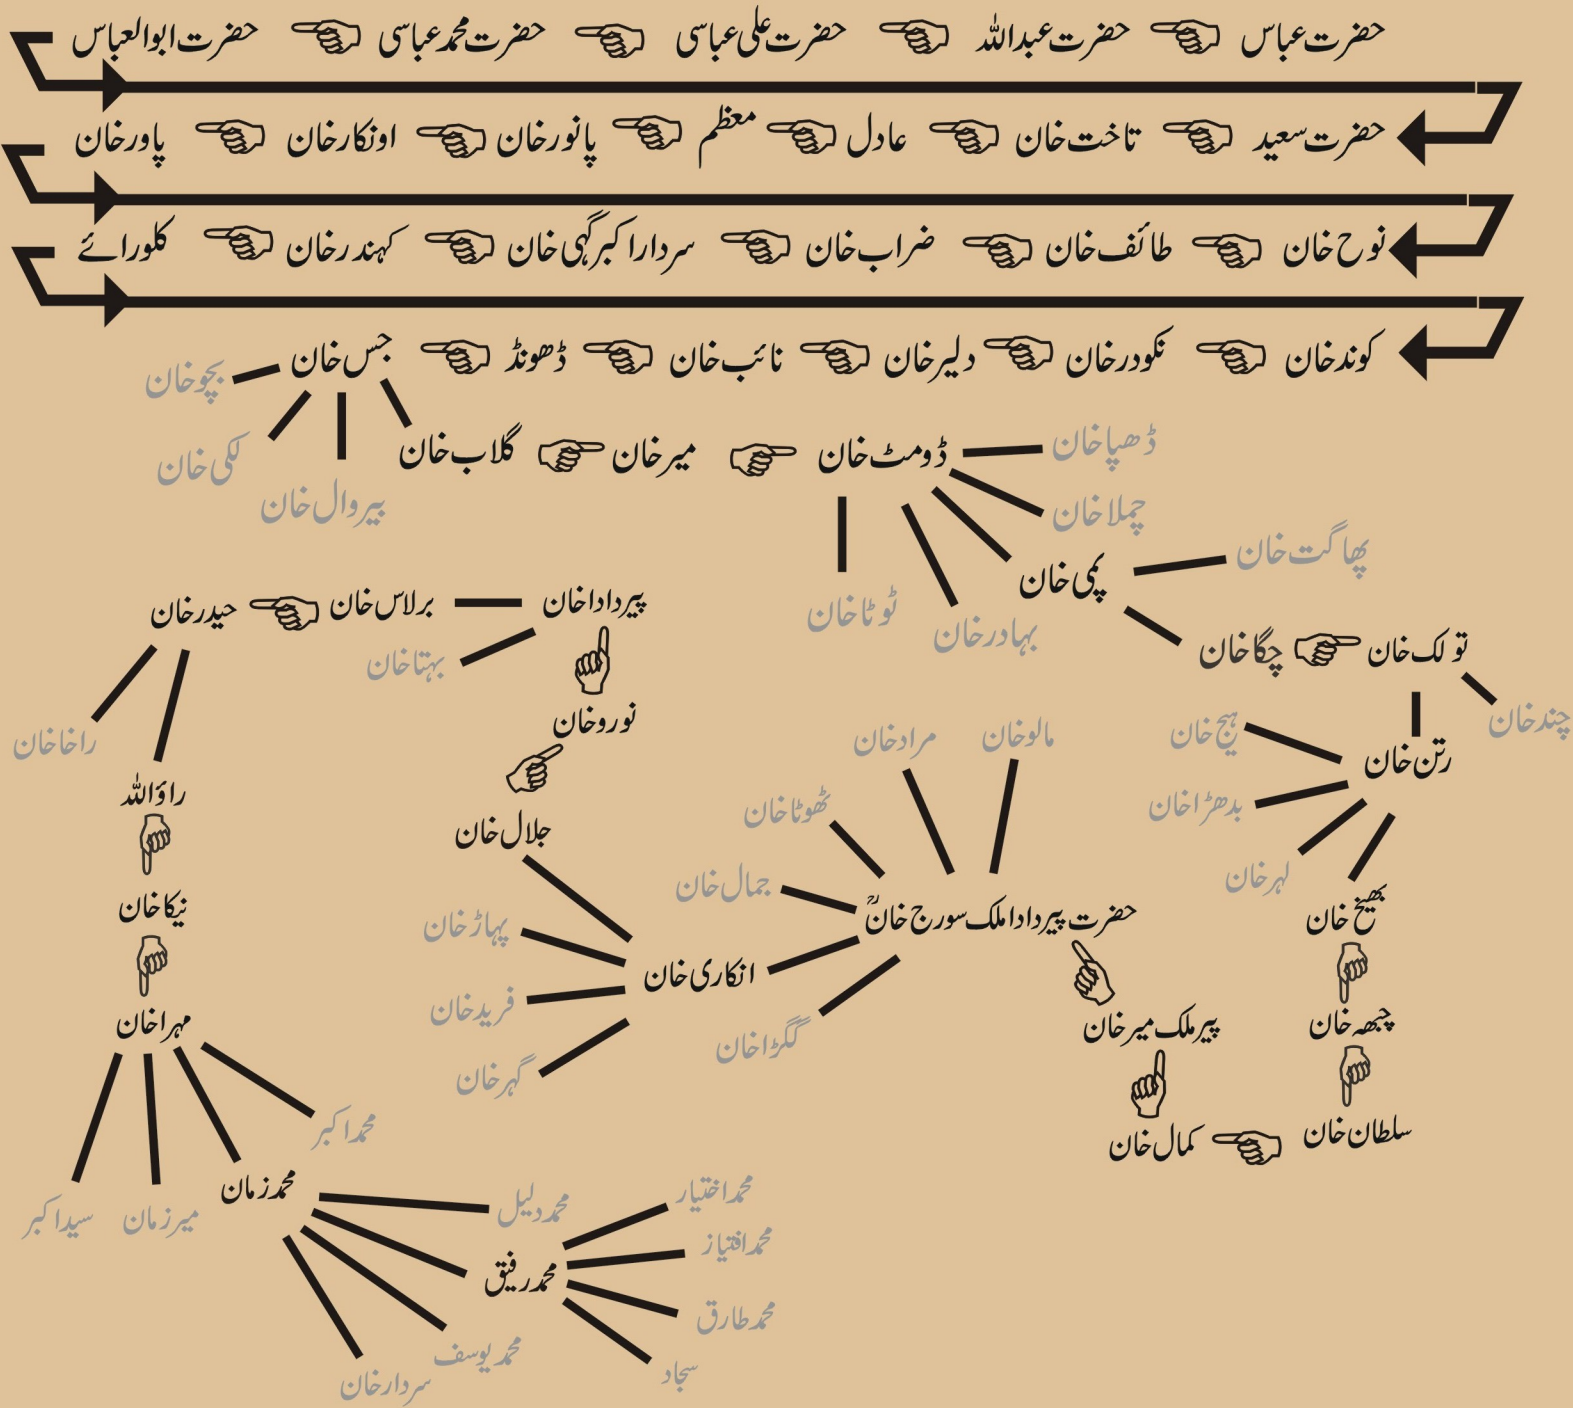 حضرت عباس حضرت عبداللہ حضرت علی عباسی حضرت محمد عباسی حضرت ابوالعباس
حضرت سعید تاخت خان عادل معظم پانور خان اونکار خان پاور خان
نوح خان طائف خان ضراب خان سردار اکبر گہی خان کہندر خان کلورائے
کوند خان نکودر خان دلیر خان نائب خان ڈھونڈ جس خان
بجو خان
لکی خان
بیروال خان
گلاب خان میر خان ڈومٹ خان
ڈھپا خان
چملا خان
پمی خان
بہادر خان
ٹوٹا خان
پھاگت خان
چگا خان تولک خان
چند خان
رتن خان
ہیج خان
بدھڑا خان
لہر خان
بھیخ خان
چبھہ خان
سلطان خان
کمال خان
پیر ملک میر خان
حضرت پیر دادا ملک سورج خانؒ
مالو خان
مراد خان
ٹھوٹا خان
جمال خان
گگڑا خان
انکاری خان
پہاڑ خان
فرید خان
گہر خان
جلال خان
نورو خان
پیر دادا خان
بہتا خان
برلاس خان
حیدر خان
راخا خان
راؤ اللہ
نیکا خان
مہرا خان
محمد اکبر
محمد زمان
میر زمان
سید اکبر
محمد دلیل
محمد رفیق
محمد یوسف
سردار خان
محمد اختیار
محمد افتیاز
محمد طارق
سجاد